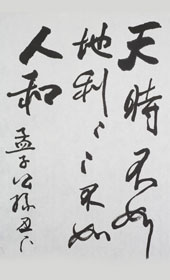 天時不如
地利〻〻不如
人和 孟子公孫丑下